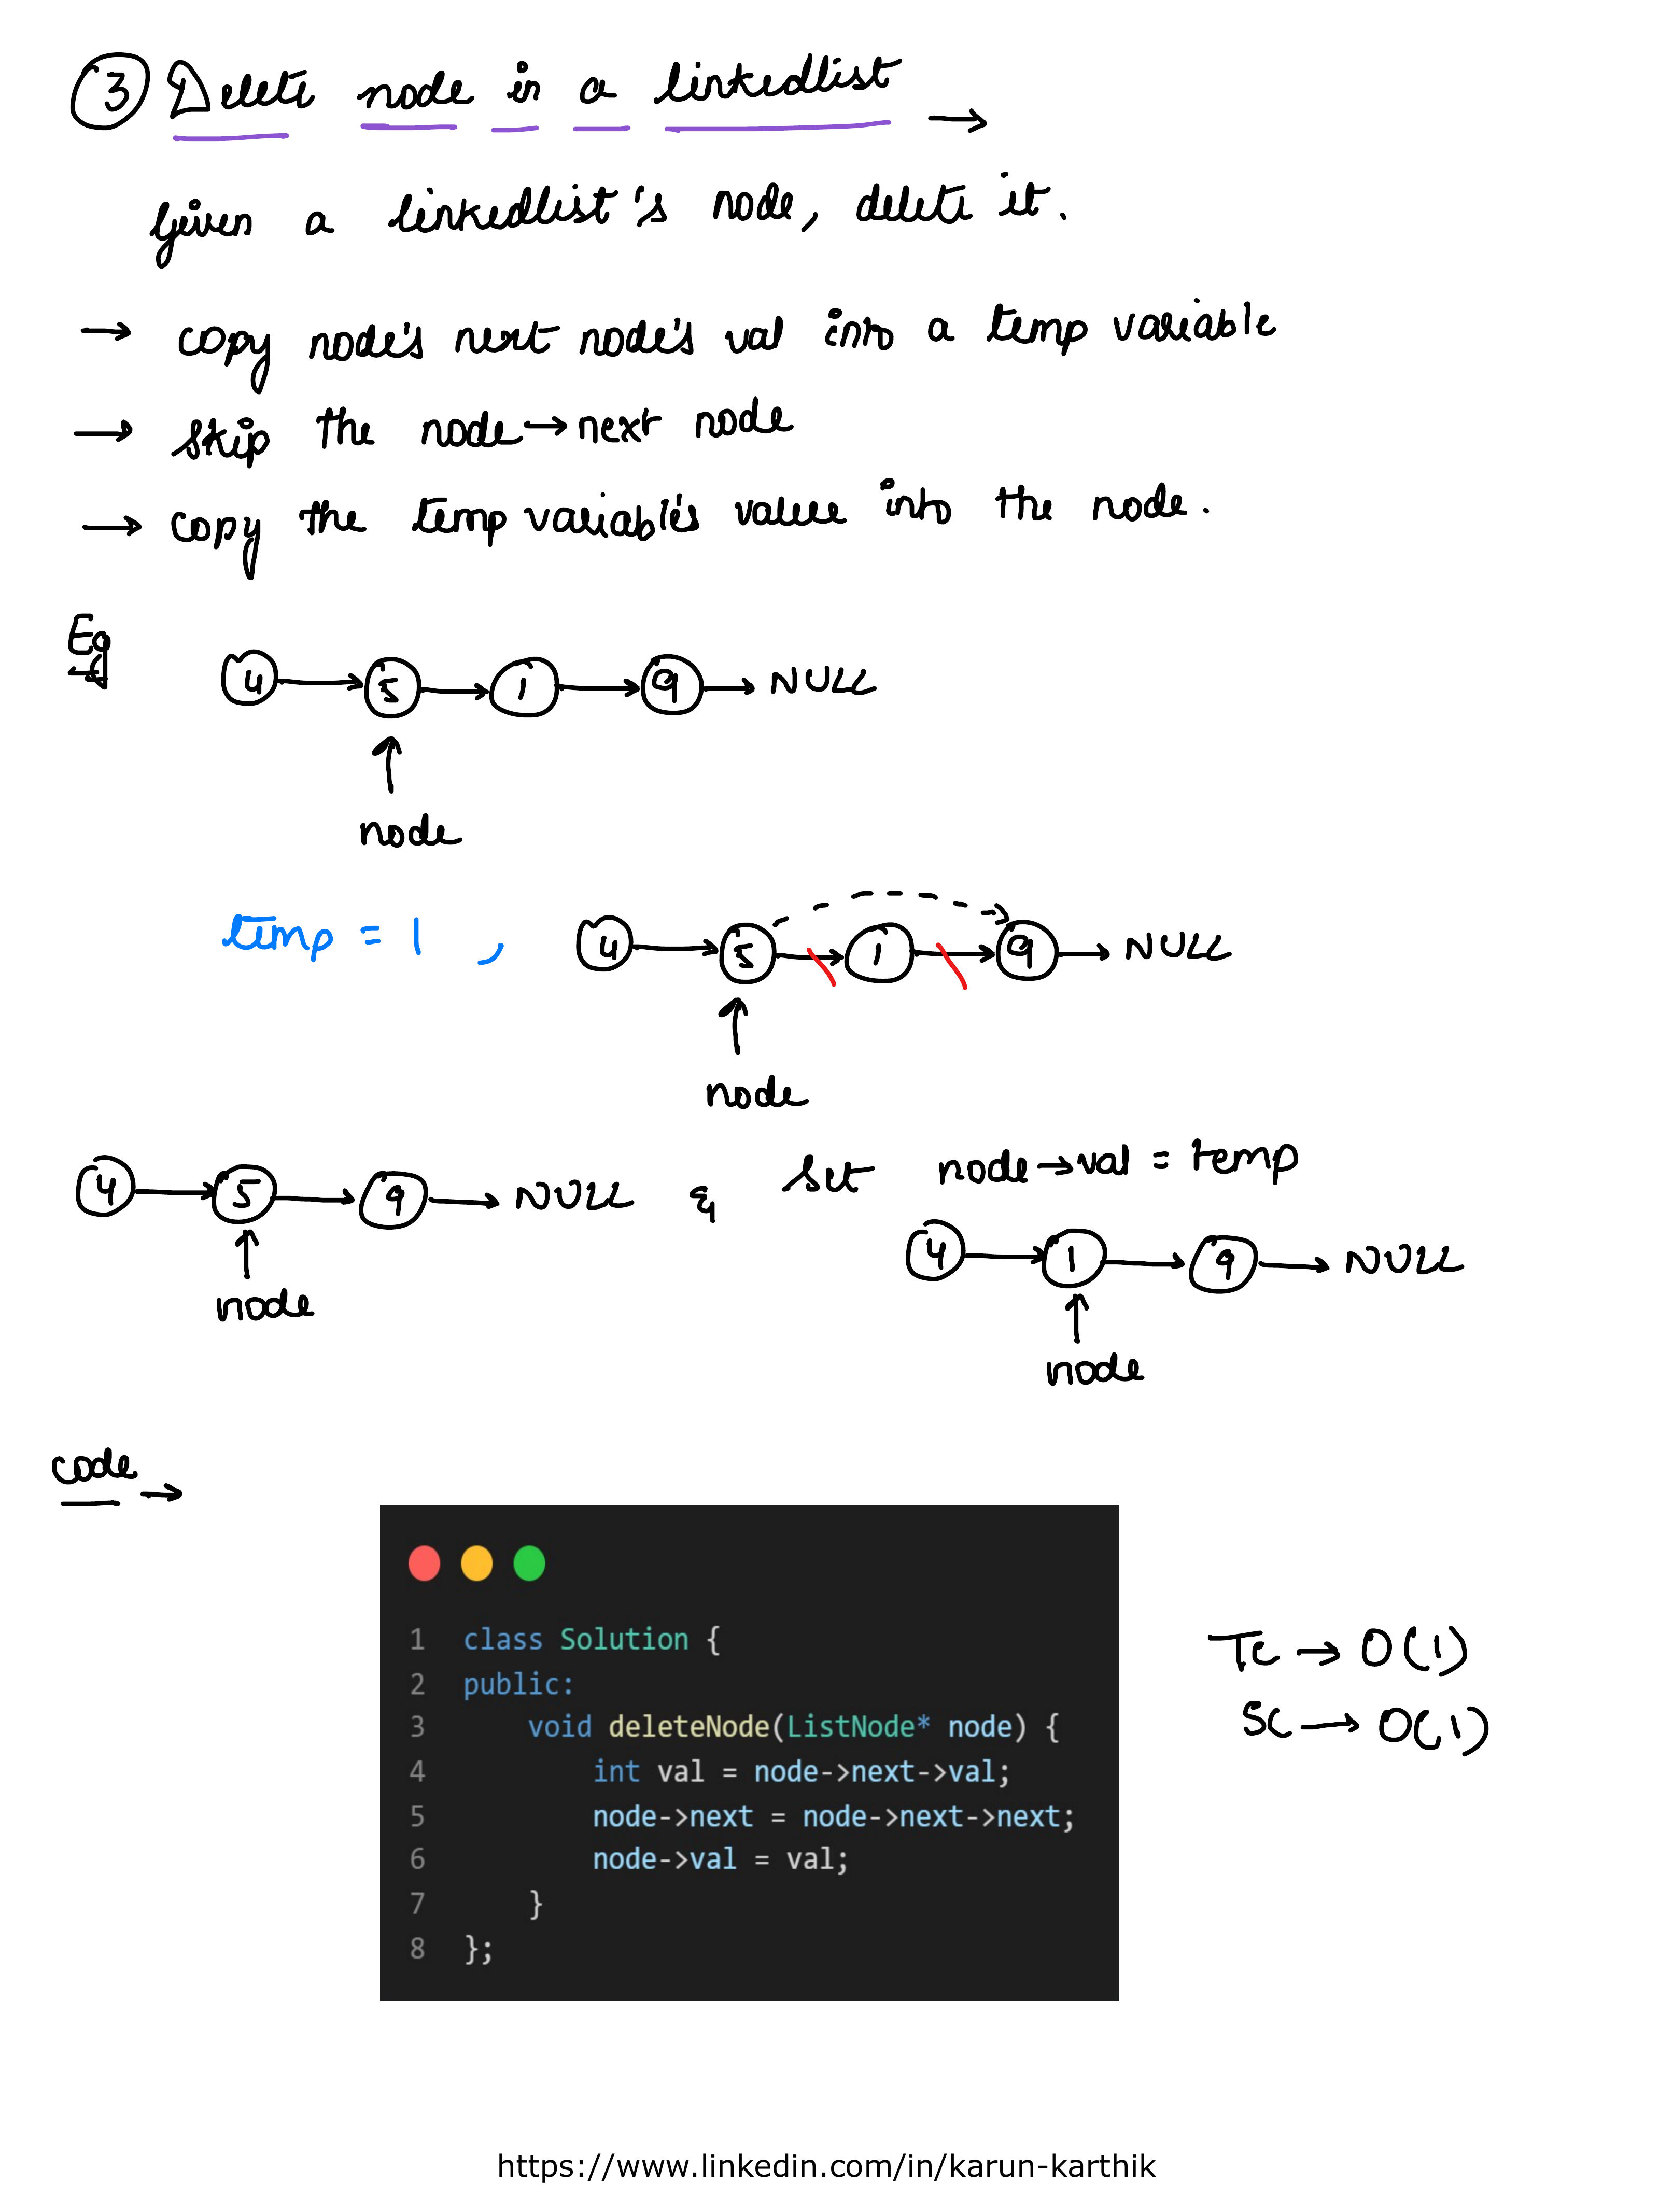 3 Delete node in a linkedlist →
Given a linkedlist's node, delete it.
→ copy node's next node's val into a temp variable
→ skip the node→next node
→ copy the temp variable's value into the node.
Eg
4 → 5 → 1 → 9 → NULL
↑
node
temp = 1 , 4 → 5 → 1 → 9 → NULL
↑
node
4 → 5 → 9 → NULL & Set node→val = temp
↑
node
4 → 1 → 9 → NULL
↑
node
code →
1 class Solution {
2 public:
3 void deleteNode(ListNode* node) {
4 int val = node->next->val;
5 node->next = node->next->next;
6 node->val = val;
7 }
8 };
TC → O(1)
SC → O(1)
https://www.linkedin.com/in/karun-karthik